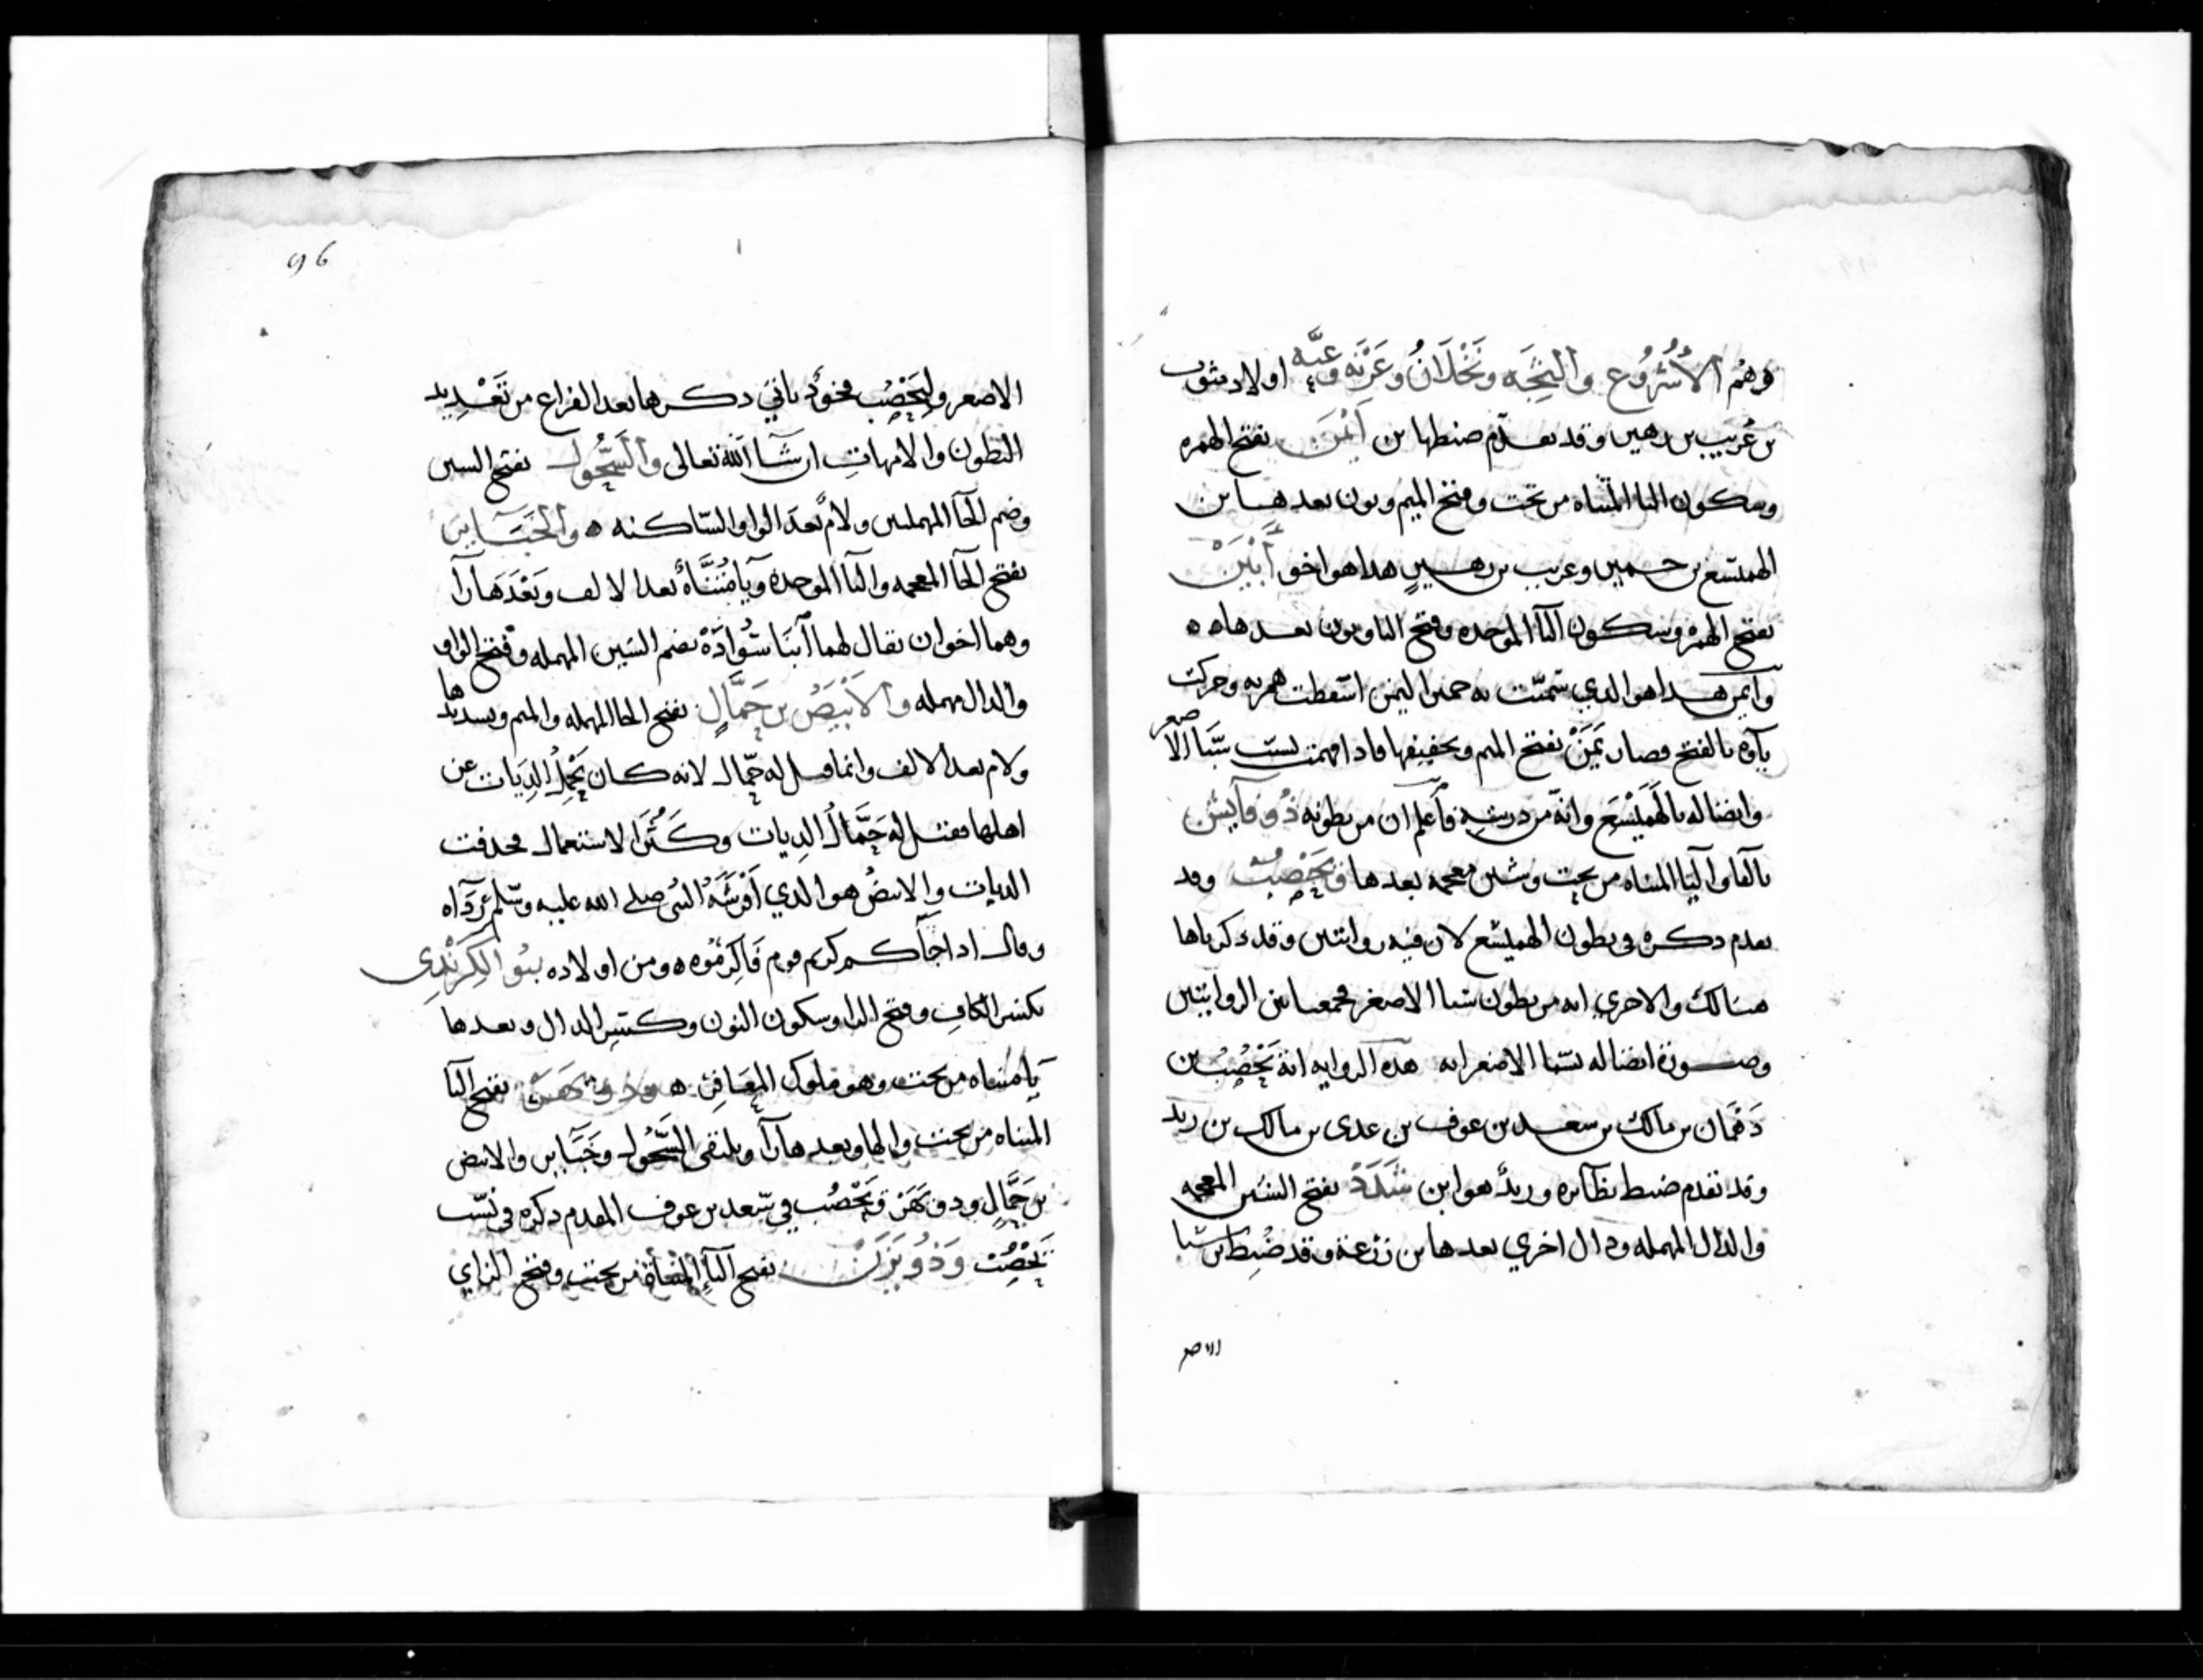 وهم الأُشْرُوع والنِجَه ونَخْلَانُ وعَرْنَه وعَيَّه اولاد مثوب
بن عُريب بن رهين وقد تقدّم ضبطها بن أَيْمَن بفتح الهمزه
وسكون اليا المثناه من تحت وفتح الميم ونون بعدها بن
الهميسع بن حمير وعريب بن رهير هدا هو اخو أَبْيَنْ
بفتح الهمزه وسكون البآ الموحده وفتح اليا ونون بعدها ه ه
وايمن هدا هو الدي سُمّيَت به حمير اليمن اسقطت همزته وحركت
يآوه بالفتح فصار يَمَنْ بفتح الميم وتخفيفها فادا فهمت نسب سَبَأ الاصغر
وايصاله بالهَمَيْسَع وانه من دريته فاعلم ان من بطونه ذُو فآيش
بالفا واليا المثناه من تحت وشين معجمه بعدها ويَحْصِبُ وقد
تقدم دكره في بطون الهميسع لان فيه روايتين وقد دكرناها
هنالك والاخري انه من بطون سبا الاصغر فجمعنا بين الروايتين
وصورة اتصاله بسبا الاصغر انه هده الروايه انه يَحْصُِبُ بن
دَهْمان بن مالك بن سعد بن عوف بن عدى بن مالك بن زيد
وقد تقدم ضبط نظآيره وزيدٌ هو ابن شَدَدْ بفتح الشين المعجمه
والدال المهمله ودال اخري بعدها بن زرعة وقد ضُبِط بن سبا
الاصغر
الاصغر وليَحْصِبُ فخوذ ياتي دكرها بعد الفراغ من تَعْدِيد
البطون والامهاتِ ان شآ الله تعالى والسَّحُول بفتح السين
وضم الحآ المهملتين ولامٌ بعد الواو السّاكنه ه والخَبَآير
بفتح الخآ المعجمه والبآ الموحده ويآ مُثَنَّاةٌ بعد الالف وبَعْدَهَا رآ
وهما اخوان يقال لهما آبنَا سُوَادَة بضم السّين المهمله وفتح الواو
والدال مهمله والأَبْيَضُ بن حَمَّالٍ بفتح الحا المهمله والميم وتشديدها
ولام بعد الالف وانما قيل له حمّال لانه كان يَحْمِلُ الدِيَات عن
اهلها فقيل له حَمَّالُ الديات وكَثُرَ الاستعمال فحدفت
الديات والابيضُ هو الدي أَفْرَشَهُ النبي صلى الله عليه وسّلم رِدَآه
وقال ادا جآكم كريم قوم فَاكرِمُوه ه ومن اولاده بنو الكِرَنْدِى
بكسر الكافِ وفتح الرا وسكون النون وكسرِ الدال وبعدها
يآ مثناه من تحت وهو ملوك المعَافِر ه وذو يَهَرْ بفتح اليآ
المثناه من تحت والها وبعدها رآ ويلتقى السَّحُول وخَبَآير والابيض
بن حَمَّالٍ ودو يَهَرْ ويَحْصُب في سّعد بن عوف المقدم دكره في نسّب
يَحْصِبَ وَذُو يَزَنْ بفتح اليآ المثناة من تحت وفتح الزاي